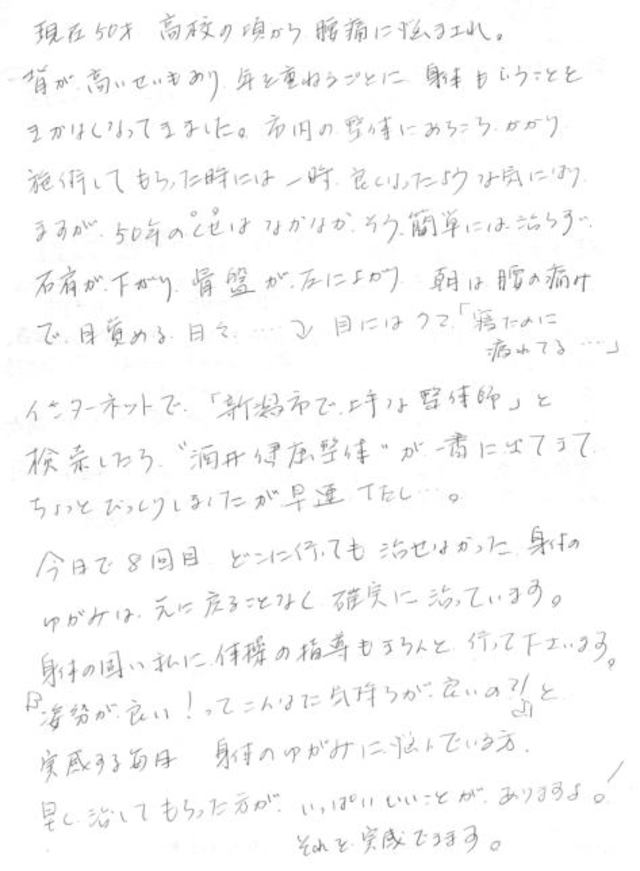 現在50才 高校の頃から腰痛に悩まされ。
背が高いせいもあり、年を重ねるごとに 身体もいうことを
きかなくなってきました。市内の整体にあちこちかかり
施術してもらった時には一時、良くなったような気になり
ますが、50年のくせはなかなか、そう簡単には治らず、
右肩が下がり、骨盤が左に上がり 朝は腰の痛み
で、目覚める日々、…… 目にはクマ、「寝たのに
疲れてる…」
インターネットで、「新潟市で、上手な整体師」と
検索したら、"酒井健康整体"が一番に出てきて
ちょっとびっくりしましたが早速 TEL…。
今日で8回目、どこに行っても治せなかった、身体の
ゆがみは、元に戻ることなく、確実に治っています。
身体の固い私に、体操の指導もきちんと行って下さいます。
姿勢が良い!ってこんなに気持ちが良いの?!と
実感する毎日 身体のゆがみに悩んでいる方、
早く治してもらった方が、いっぱいいいことがありますよ。!
それを実感できます。